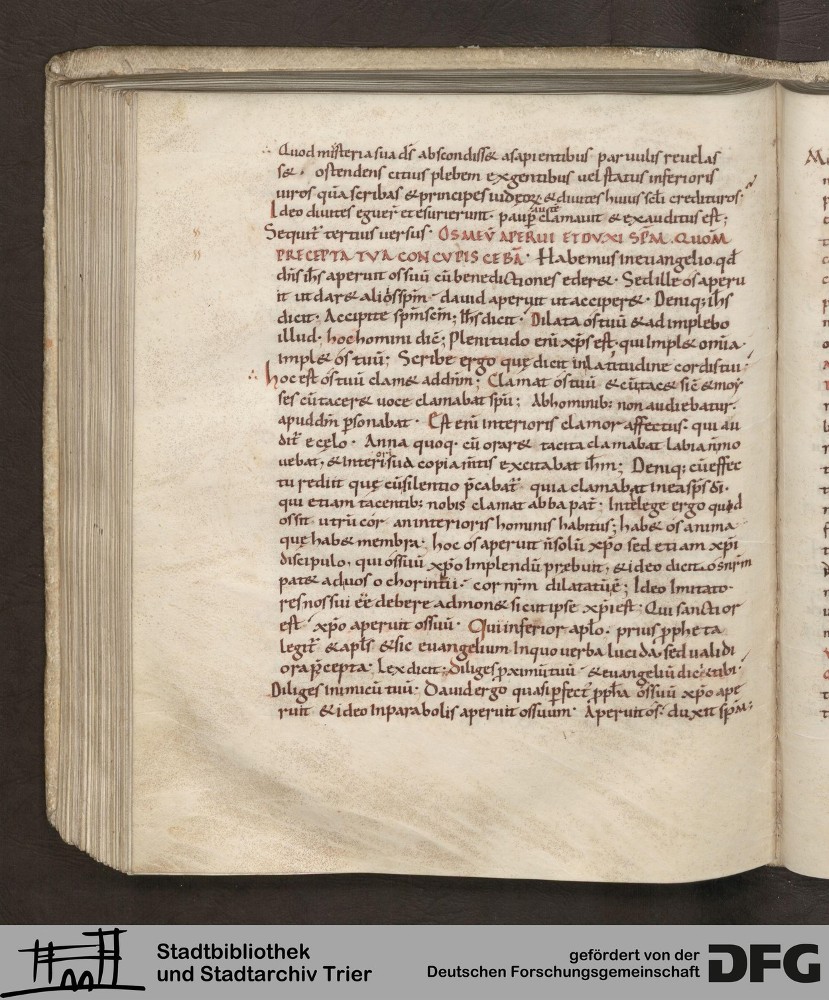 Quod misteria sua ds̄ abscondiss& a sapientibus paruulis reuelas
s&· ostendens citius plebem ex gentibus uel status inferioris
uiros quā scribas & principes iudeoꝝ & diuites huius sc̄li credituros·
Ideo diuites eguer̄ et esurierunt· paup̄ iste clamauit & exauditus est;
Sequit̄ tertius uersus· OS MEŪ APERUI ET DUXI SPM̄ QUOM̄
PRECEPTA TVA CONCVPISCEBĀ· Habemus in euangelio qd̄
dn̄s ih̄s aperuit os suū cū benedictiones eder&· Sed ille os aperu
it ut dar& aliis sp̄m· dauid aperuit ut acciper&· Deniq; ih̄s
dicit· Accipite sp̄m sc̄m; Ih̄s dicit· Dilata os tuū & adimplebo
illud· hoc homini dic̄; Plenitudo eni xp̄s est· qui impl& om̄ia·
impl& ós tuū; Scribe ergo quę dicit in latitudine cordis tui·
hoc est ós tuū clam& ad dn̄m; Clamat ós tuū & cū tac& sic̄ & moy
ses cū tacer& uoce clamabat sp̄u; Ab hominib; non audiebatur·
apud dm̄ psonabat· Est eni interioris clamor affectus· qui au
dit̄ e cęlo· Anna quoq· cū orar& tacita clamabat labia n̄ mo
uebat, & interioris ud copia m̄tis excitabat ih̄m; Deniq; cū effec
tu rediit quę cū silentio p̄cabat̄· quia clamabat in ea sp̄s dī·
qui etiam tacentib; nobis clamat abba pat̄; Intellege ergo quod
os sit· utrū cór an interioris hominis habitus; hab& ós anima
quę hab& membra· hoc ós aperuit n̄ solū xp̄o sed etiam xp̄i
discipulo, qui os suū xp̄o implendū prebuit, & ideo dicit· os nr̄m
pat& ad uos o chorintii· cor nr̄m dilatatū ē; Ideo imitato·
res nos sui ēē debere admon& sicut ipse xp̄i est· Qui sanctior
est xp̄o aperuit os suū· Qui inferior apl̄o· prius ppheta
legit̄ & apl̄s & sic euangelium In quo uerba lucida· sed ualidi
ora p̄cepta· Lex dicit· diliges pximū tuū· & euangeliū dicit tibi·
Diliges inimicū tuū· Dauid ergo quasi pfect̄ ppha os suū xp̄o ape
ruit & ideo In parabolis aperuit os suum· Aperuit ós· duxit sp̄m·
Stadtbibliothek
und Stadtarchiv Trier
gefördert von der
Deutschen Forschungsgemeinschaft
DFG